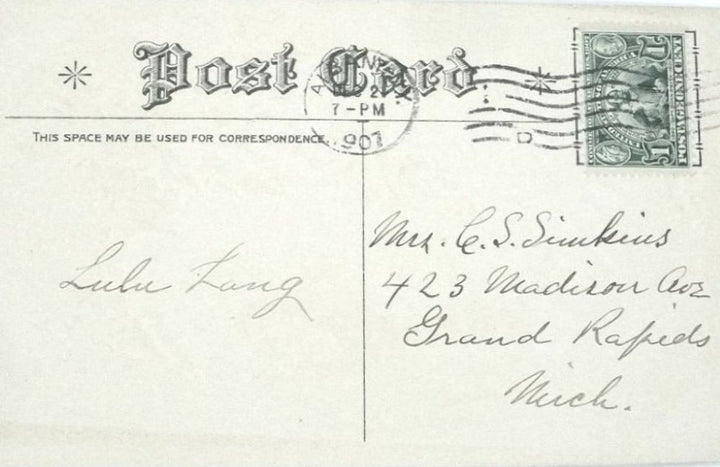 Post Card
7-PM
1907
THIS SPACE MAY BE USED FOR CORRESPONDENCE.
Lulu Lang
Mrs. C. S. Simkins
423 Madison Ave
Grand Rapids
Mich.
POSTAGE ONE CENT
1 1